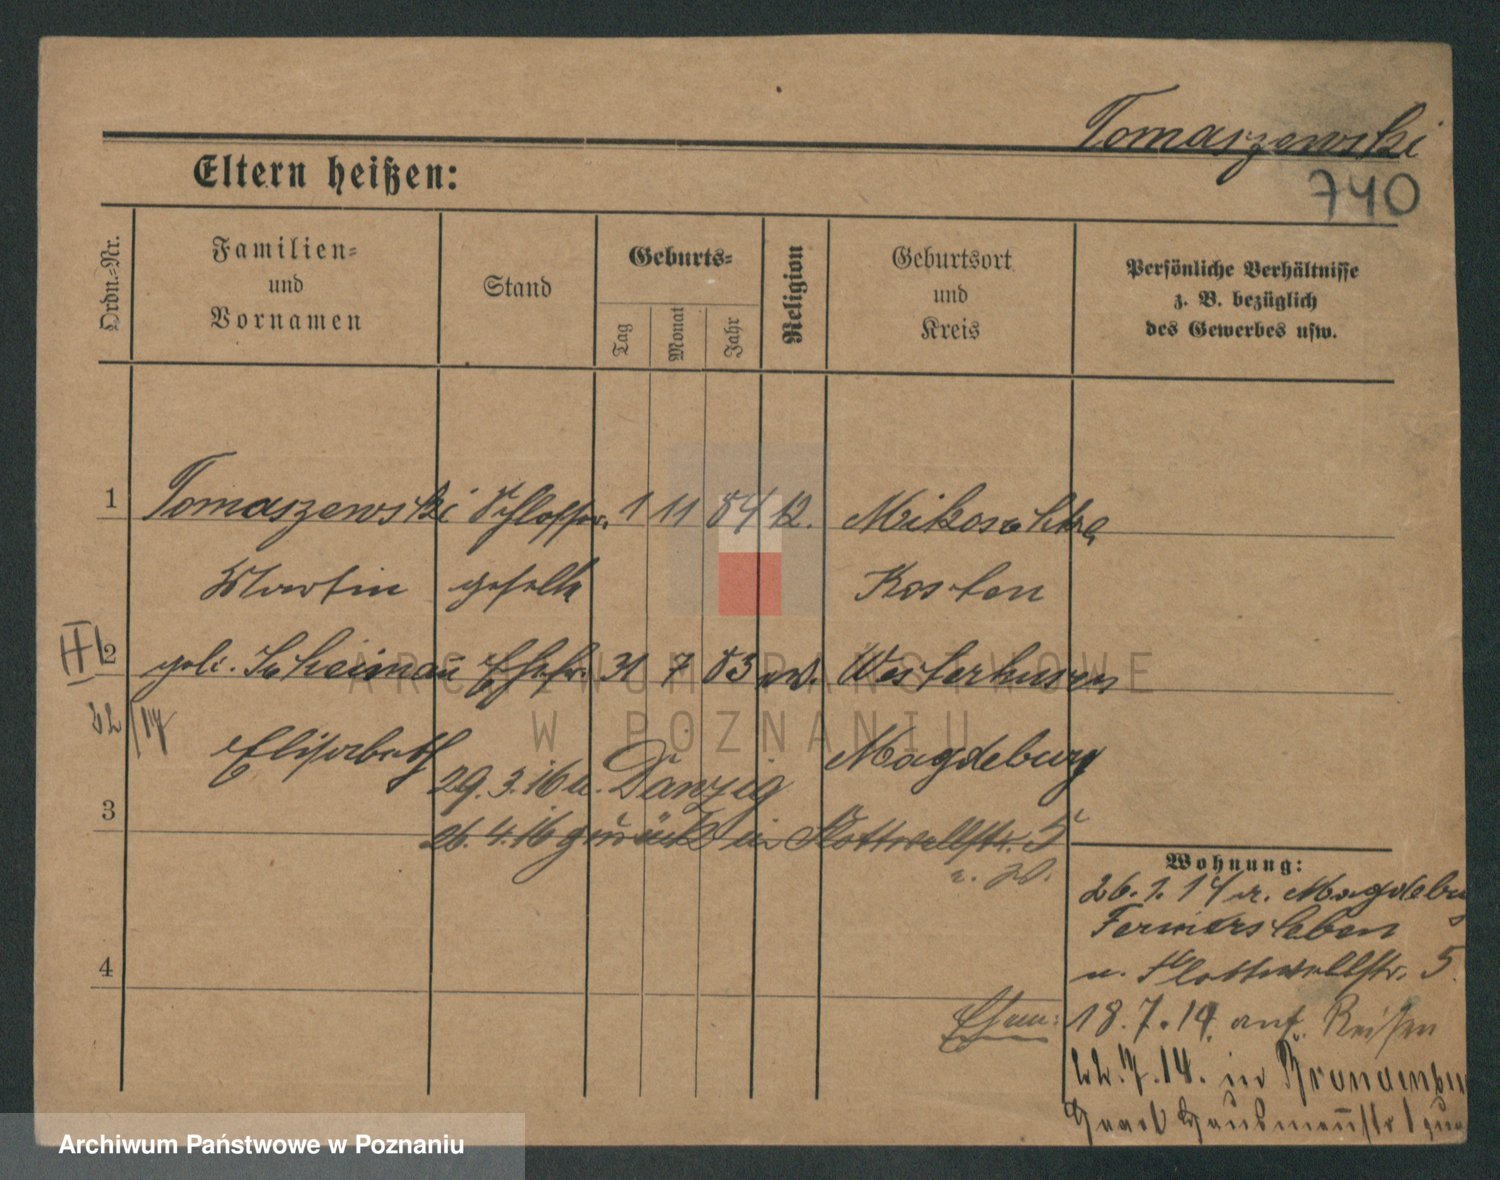 Tomaszewski
740
Eltern heißen:
Ordn.-Nr.
Familien-
und
Vornamen
Stand
Geburts-
Tag
Monat
Jahr
Religion
Geburtsort
und
Kreis
Persönliche Verhältnisse
z. B. bezüglich
des Gewerbes usw.
1 Tomaszewski Schlosser 1 11 84 k.
Martin geselle Kosten
2 geb. Ehefr. 31 7 83 ev. Westerhusen
14
Elisabeth Magdeburg
29.3.16 n. Danzig
3
26.4.16 zurück in Flottwellstr. 5
Wohnung:
26.1.14 v. Magdebu
Fermersleben
n. Flottwellstr. 5.
4
Ehem: 18.7.14 auf Reisen
22.7.14. in Brandenbu
ARCHIWUM PAŃSTWOWE
W POZNANIU
Archiwum Państwowe w Poznaniu